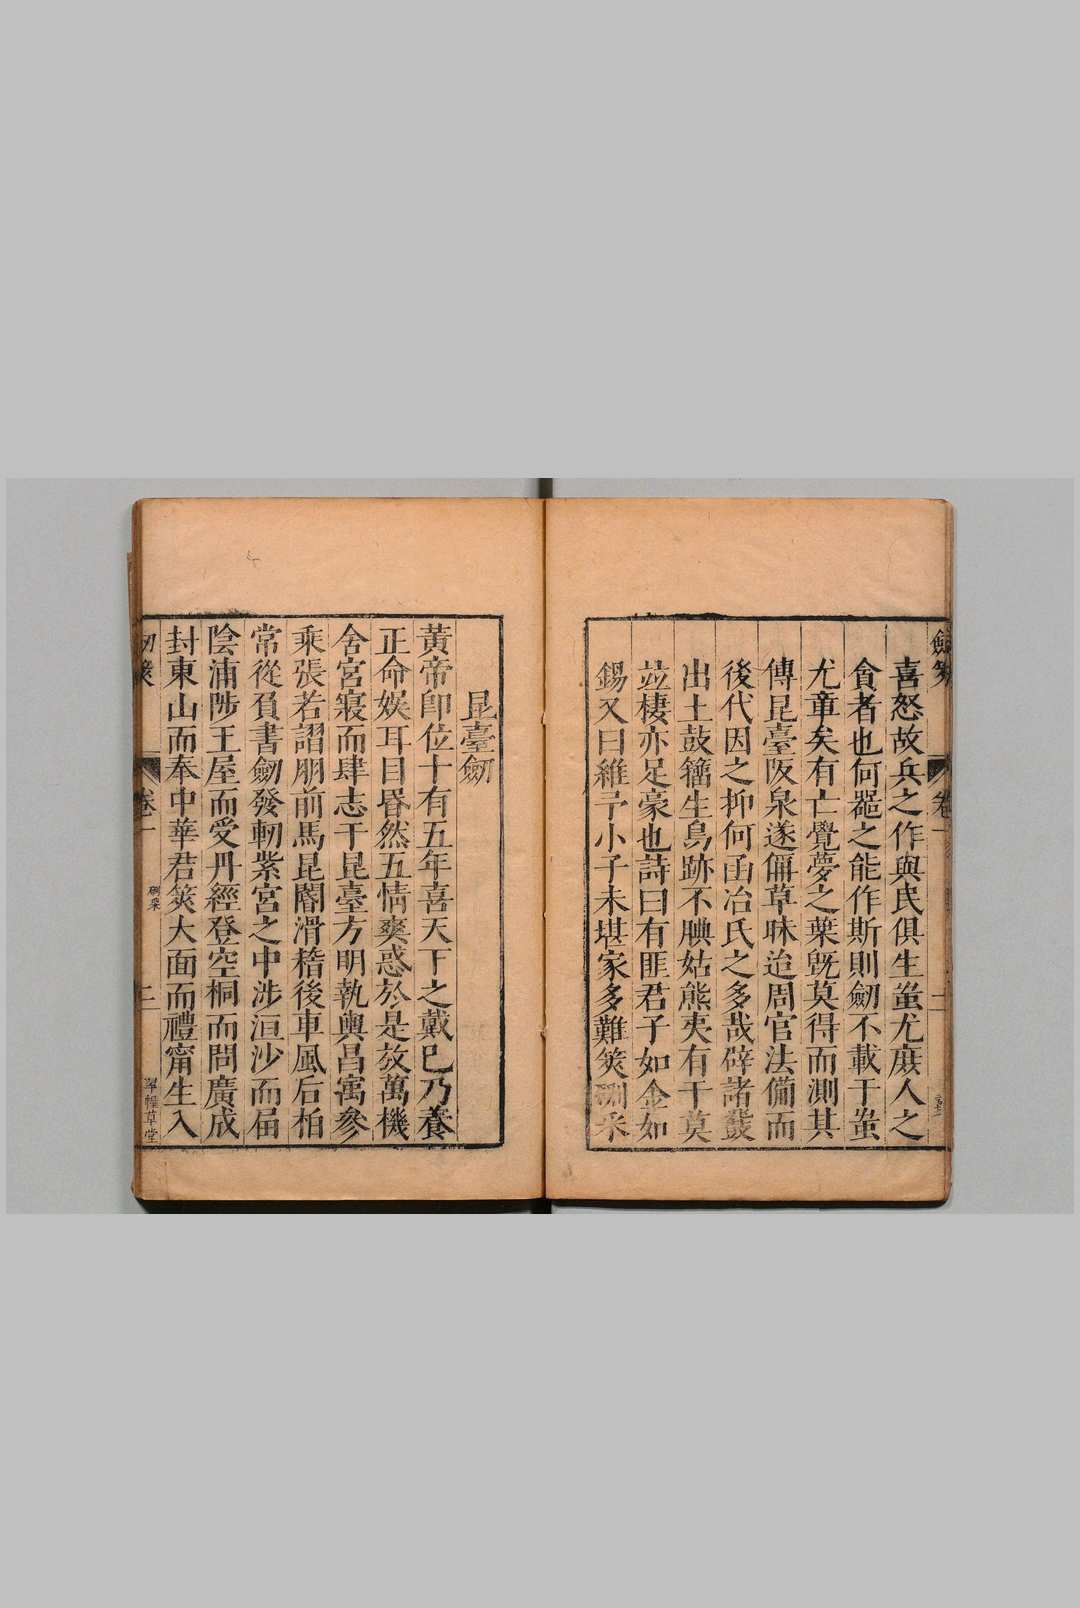 喜怒故兵之作與民俱生蚩尤庶人之
貪者也何器之能作斯則劒不載于蚩
尤章矣有亡覺夢之葉旣莫得而測其
傳昆臺阪泉遂偋草昧迨周官法僃而
後代因之抑何函冶氏之多哉碎諸蕟
出土鼓籒生鳥跡不腆姑熊夷有干莫
竝棲亦足豪也詩曰有匪君子如金如
錫又曰維予小子未堪家多難筴
昆臺劒
黃帝卽位十有五年喜天下之戴已乃養
正命娛耳目昬然五情爽惑於是放萬機
舍宮寢而肆志于昆臺方明執輿昌㝢參
乘張若謵朋前馬昆閽滑稽後車風后柏
常從負書劒發軔紫宮之中涉洹沙而届
陰浦陟王屋而受丹經登空桐而問廣成
封東山而奉中華君筴大面而禮甯生入
卷一
二
翠幄草堂